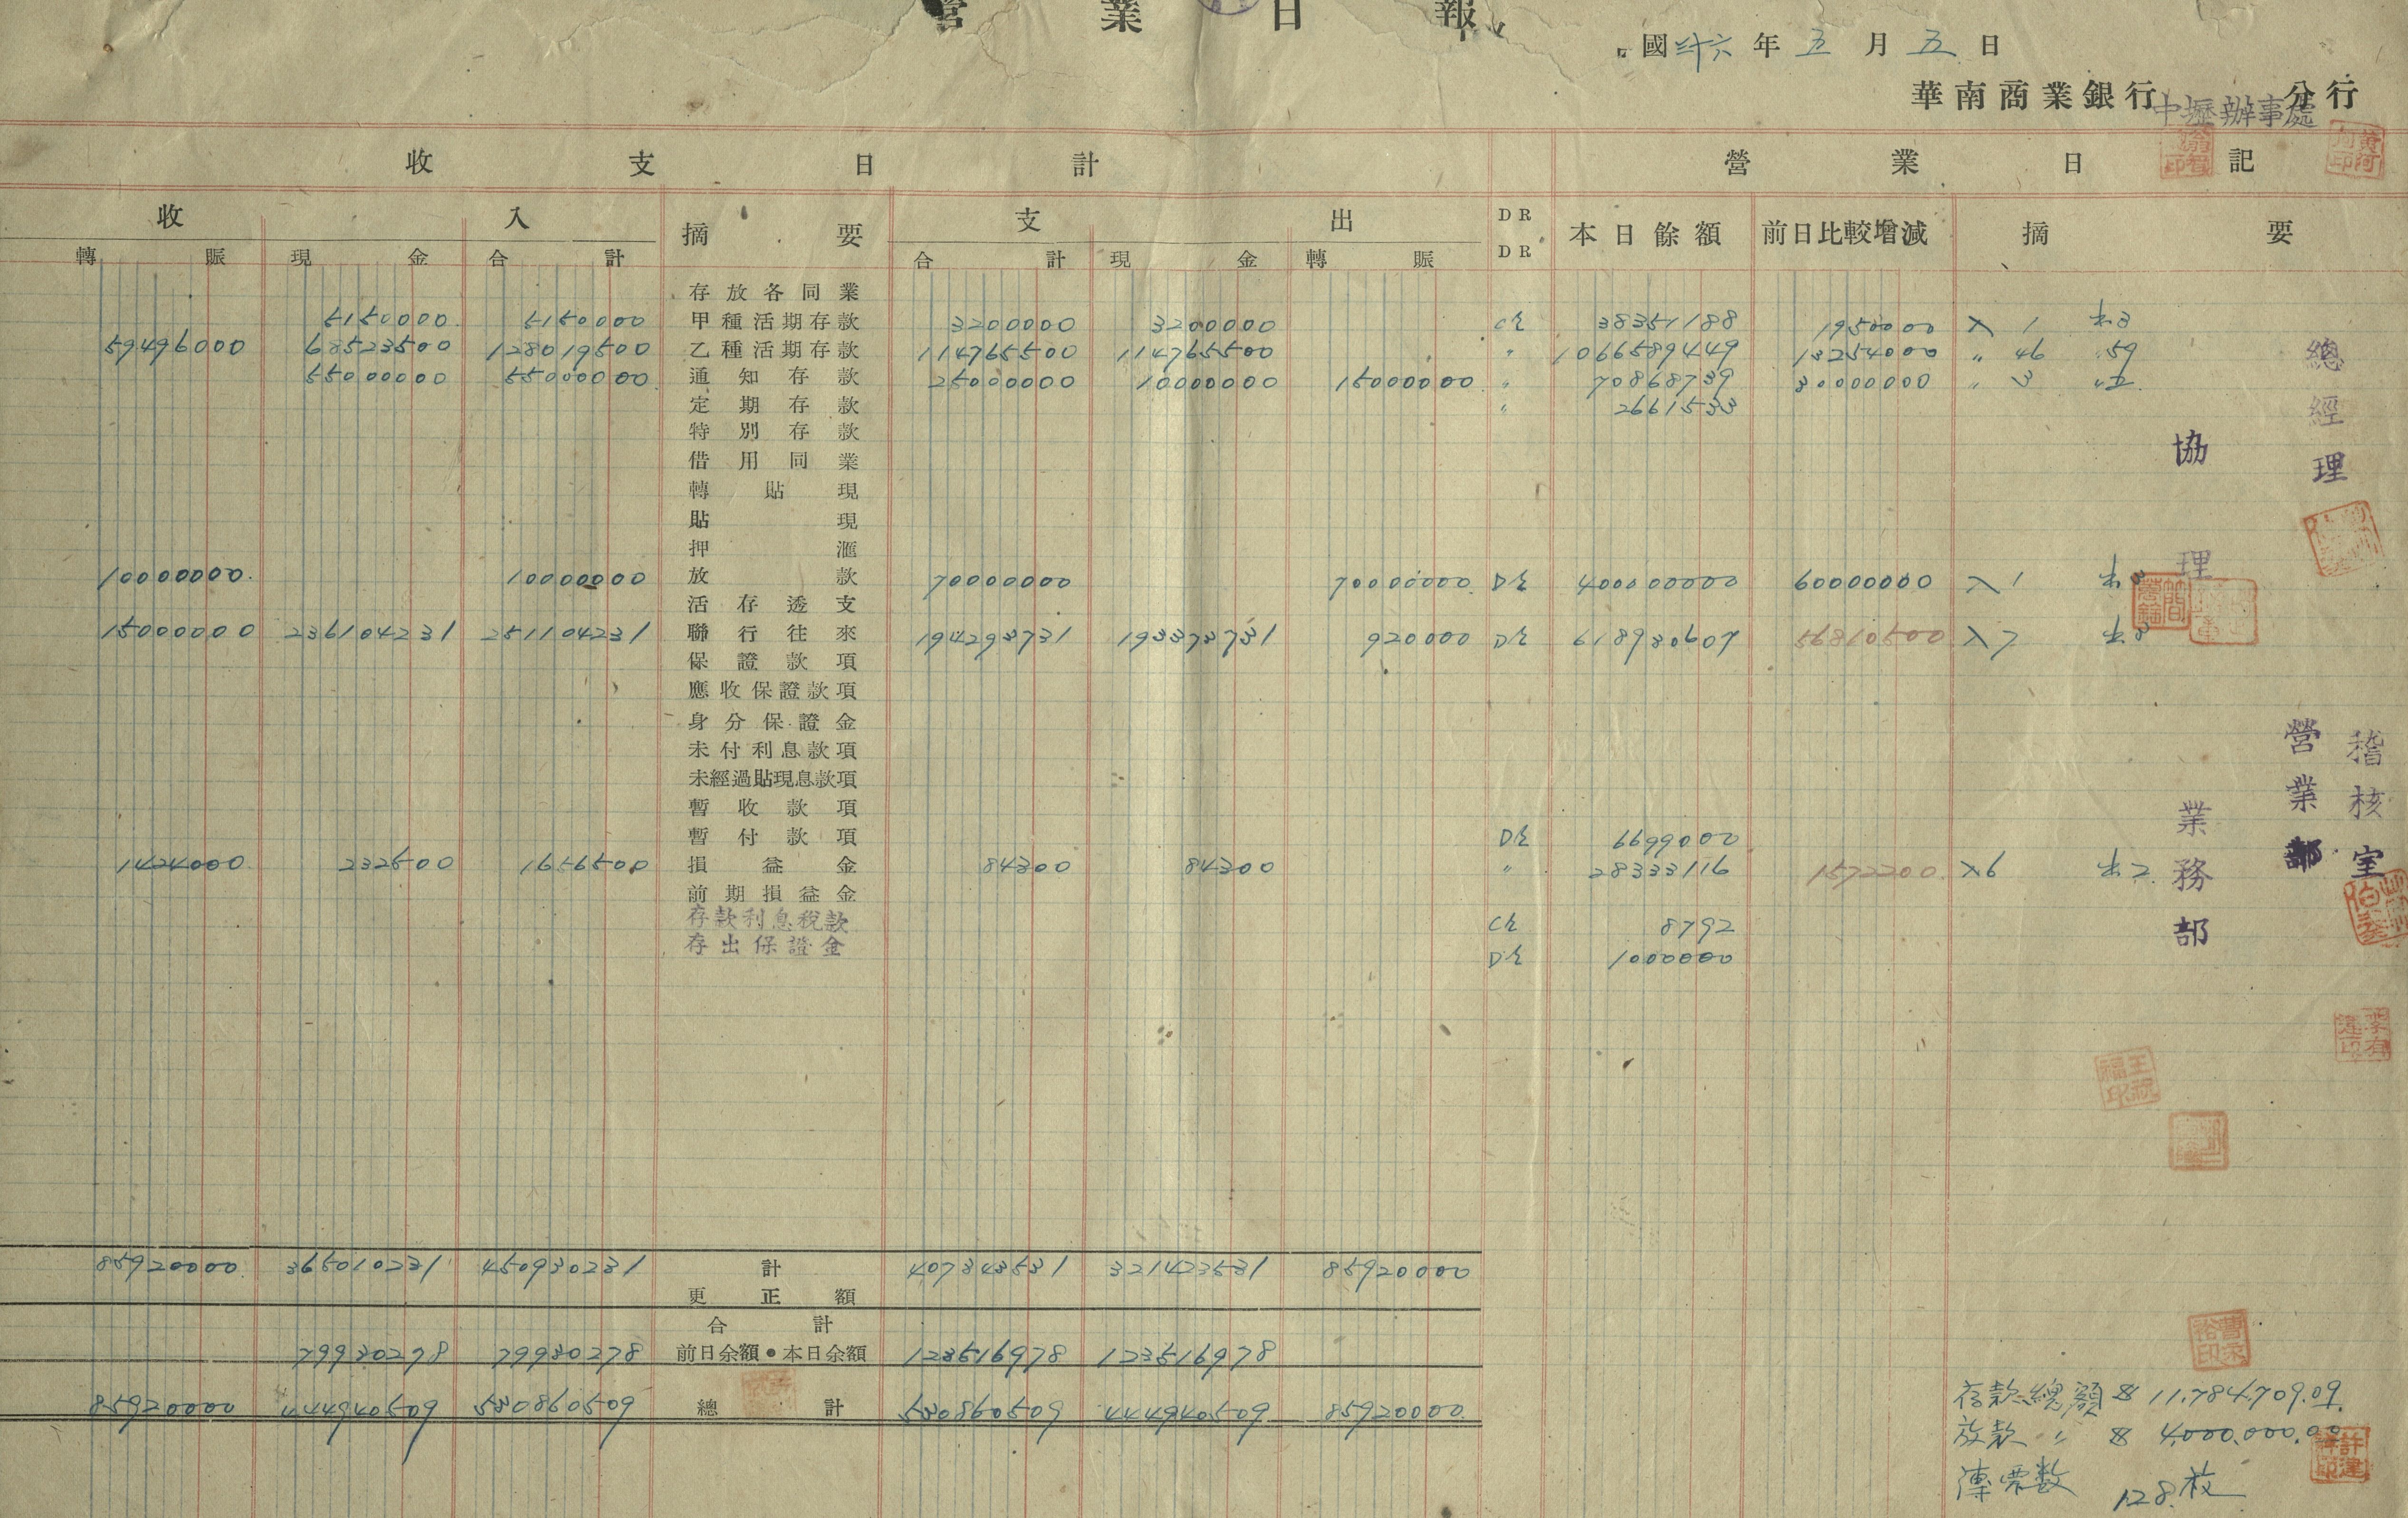 營業日報
國卅六年五月五日
華南商業銀行 中壢辦事處 分行
收支日計 營業日記
收入 摘要 支出 DR 本日餘額 前日比較增減 摘要
轉賬 現金 合計 合計 現金 轉賬 DR
存放各同業
5150000 5150000 甲種活期存款 3200000 3200000 Cr 38351188 1950000 入 1 出3
59496000 68523500 128019500 乙種活期存款 114765500 114765500 〃 1066589449 13254000 〃 46 〃59
55000000 55000000 通知存款 25000000 10000000 15000000 〃 70868739 30000000 〃 3 〃2
定期存款 〃 2661533
特別存款
借用同業
轉貼現
貼現
押滙
10000000 10000000 放款 70000000 70000000 Dr 400000000 60000000 入1 出3
活存透支
15000000 236104231 251104231 聯行往來 194293731 193373731 920000 Dr 618930607 56810500 入7 出8
保證款項
應收保證款項
身分保證金
未付利息款項
未經過貼現息款項
暫收款項
暫付款項 Dr 6699000
1424000 232500 1656500 損益金 84300 84300 〃 28333116 1572200 入6 出2
前期損益金
存款利息稅款 Cr 8792
存出保證金 Dr 1000000
總經理
協理
稽核室
營業部
業務部
85920000 365010231 450930231 計 407343531 321423531 85920000
更正額
合計
79930278 79930278 前日余額•本日余額 123516978 123516978
85920000 444940509 530860509 總計 530860509 444940509 85920000
存款總額 11.784.709.09
放款 〃 4.000.000.00
傳票数 128枚